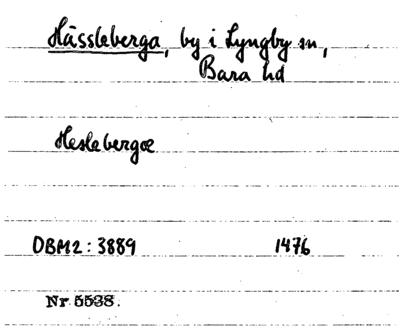 Hässleberga, by i Lyngby sn,
Bara hd
Heslebergæ
DBM2: 3889 1476
Nr 5538.